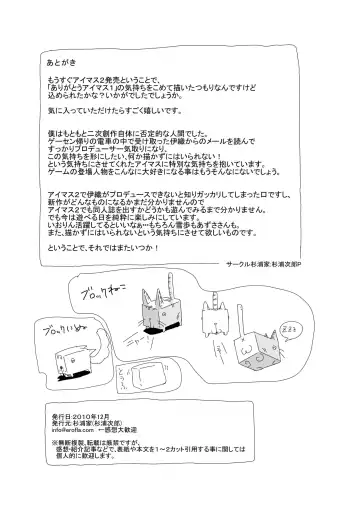 あとがき
もうすぐアイマス2発売ということで、
「ありがとうアイマス1」の気持ちをこめて描いたつもりなんですけど
込められたかな?いかがでしたでしょうか。
気に入っていただけたらすごく嬉しいです。
僕はもともと二次創作自体に否定的な人間でした。
ゲーセン帰りの電車の中で受け取った伊織からのメールを読んで
すっかりプロデューサー気取りになり、
この気持ちを形にしたい、何か描かずにはいられない!
という気持ちにさせてくれたアイマスに特別な気持ちを抱いています。
ゲームの登場人物をこんなに大好きになる事はもうそんなにないでしょう。
アイマス2で伊織がプロデュースできないと知りガッカリしてしまった口ですし、
新作がどんなものになるかまだ分かりませんので
アイマス2でも同人誌を出すかどうかも遊んでみるまで分かりません。
でも今は遊べる日を純粋に楽しみにしています。
いおりん活躍してるといいなぁ・・・もちろん雪歩もあずささんも。
また、描かずにはいられないという気持ちにさせて欲しいものです。
ということで、それではまたいつか!
サークル杉浦家:杉浦次郎P
ブロックねこ
ブロックいぬ
ニャー
ZZZ
発行日:2010年12月
発行元:杉浦家(杉浦次郎)
info@erofla.com ←感想大歓迎
※無断複製、転載は厳禁ですが、
感想・紹介記事などで、表紙や本文を1～2カット引用する事に関しては
個人的に歓迎します。